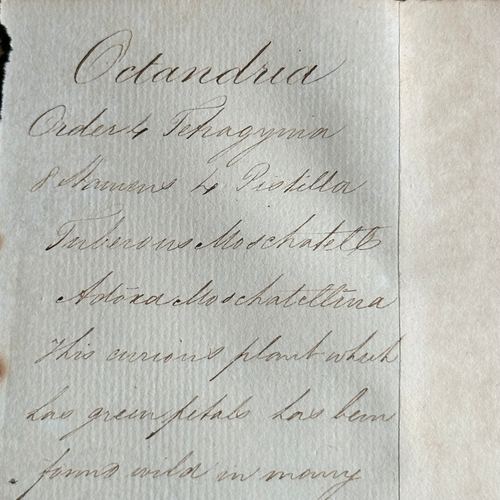 Octandria
Order 4 Tetragynia
8 Stamens 4 Pistilla
Tuberous Moschatell
Adōxa Moschatellīna
This curious plant which
has green petals has been
found wild in many